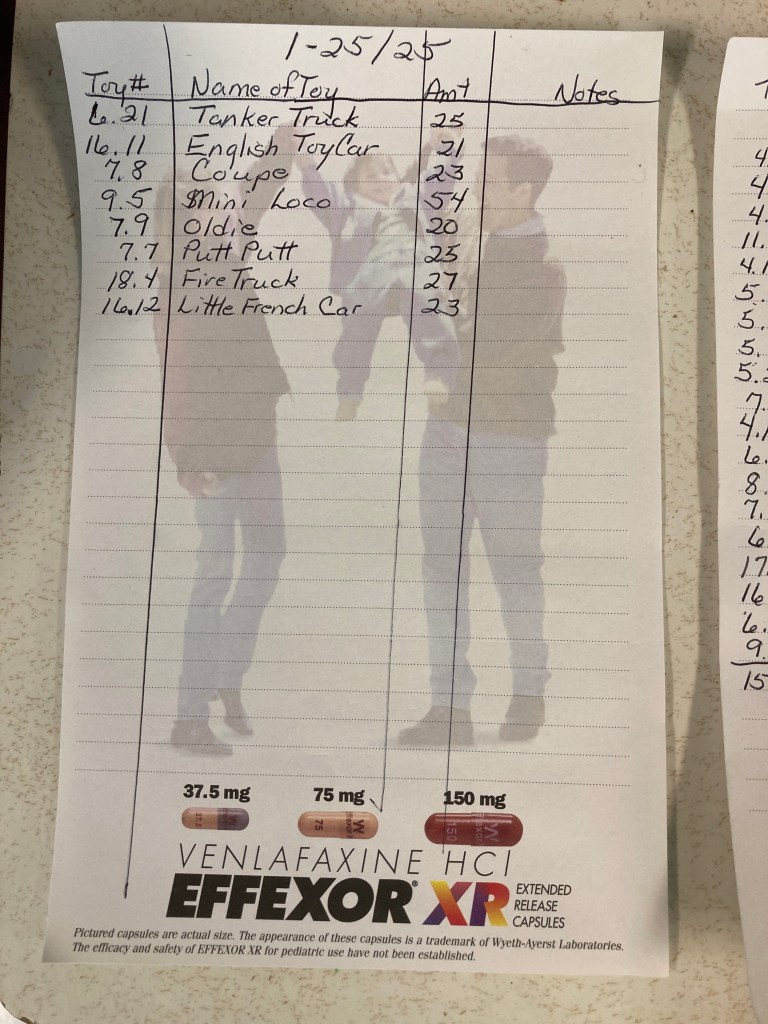 1-25/25
Toy# Name of Toy Amt Notes
6.21 Tanker Truck 25
16.11 English Toy Car 21
7.8 Coupe 23
9.5 Mini Loco 54
7.9 Oldie 20
7.7 Putt Putt 25
18.4 Fire Truck 27
16.12 Little French Car 23
37.5 mg 75 mg 150 mg
75 W 150 W
VENLAFAXINE HCl
EFFEXOR® XR EXTENDED
RELEASE
CAPSULES
Pictured capsules are actual size. The appearance of these capsules is a trademark of Wyeth-Ayerst Laboratories.
The efficacy and safety of EFFEXOR XR for pediatric use have not been established.
4.
4
4.
11.
4.1
5.
5.
5.
5.
7.
4.
6.
8.
7.
6
17
16
6.
9.
15